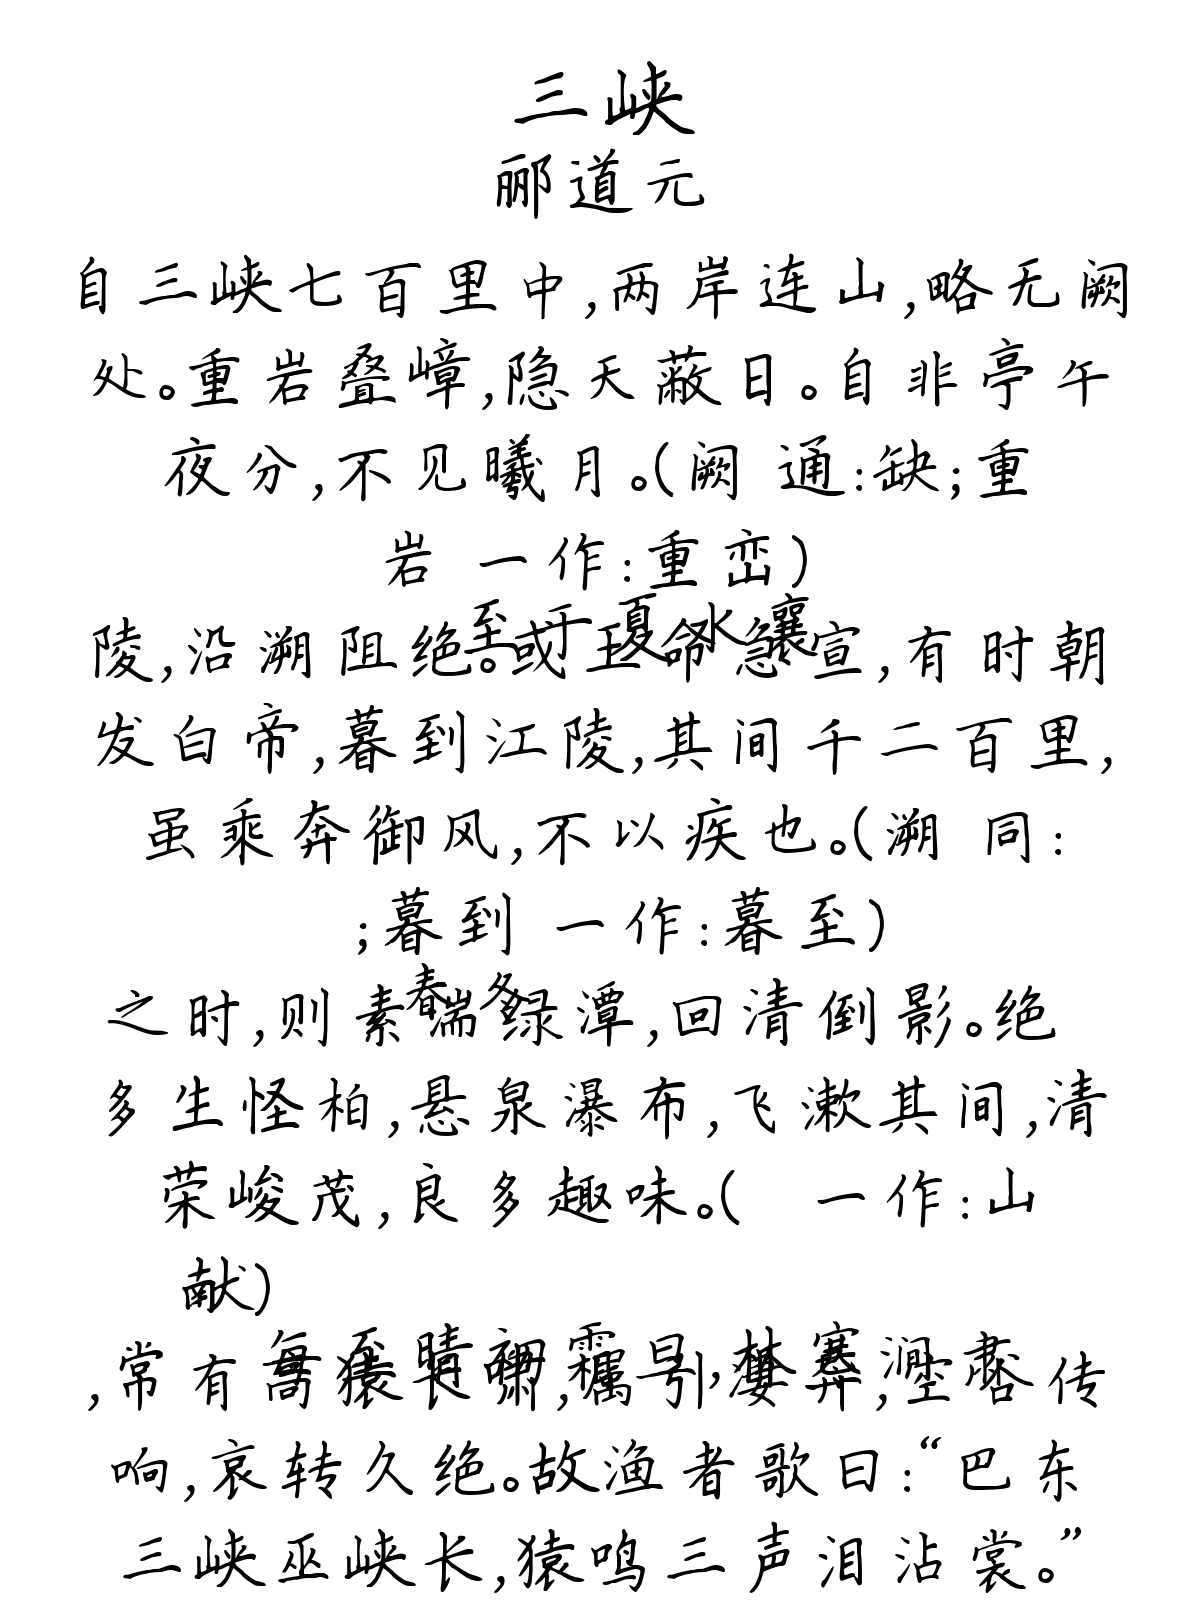 三峡
郦道元
自三峡七百里中,两岸连山,略无阙
处。重岩叠嶂,隐天蔽日。自非亭午
夜分,不见曦月。(阙 通:缺;重
岩 一作:重峦)
至于夏水襄
陵,沿溯阻绝。或王命急宣,有时朝
发白帝,暮到江陵,其间千二百里,
虽乘奔御风,不以疾也。(溯 同:
;暮到 一作:暮至)
春冬
之时,则素湍绿潭,回清倒影。绝
多生怪柏,悬泉瀑布,飞漱其间,清
荣峻茂,良多趣味。( 一作:山
献)
每至晴初霜旦,林寒涧肃
,常有高猿长啸,属引凄异,空谷传
响,哀转久绝。故渔者歌曰:“巴东
三峡巫峡长,猿鸣三声泪沾裳。”